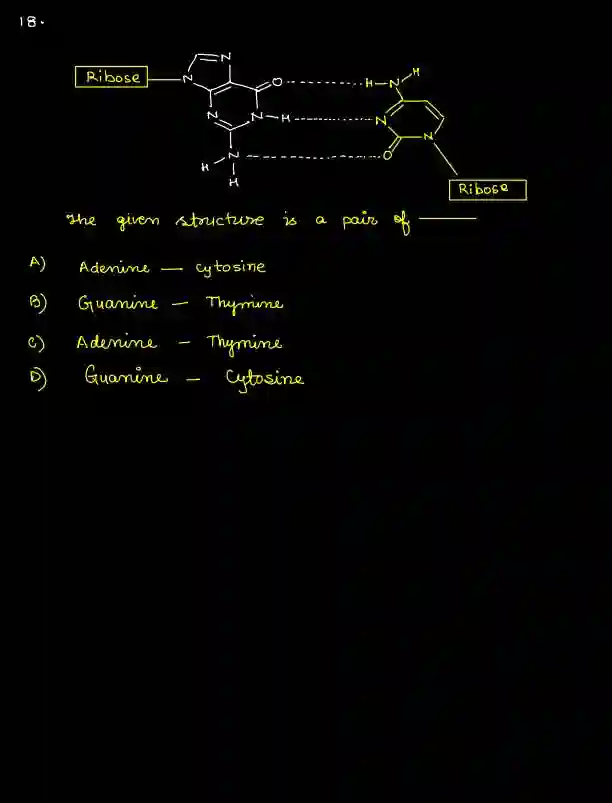 18.
Ribose
N
N
O
H
N
H
N
N
H
N
N
N
O
H
N
H
Ribose
The given structure is a pair of ———
A) Adenine — cytosine
B) Guanine — Thymine
C) Adenine — Thymine
D) Guanine — Cytosine